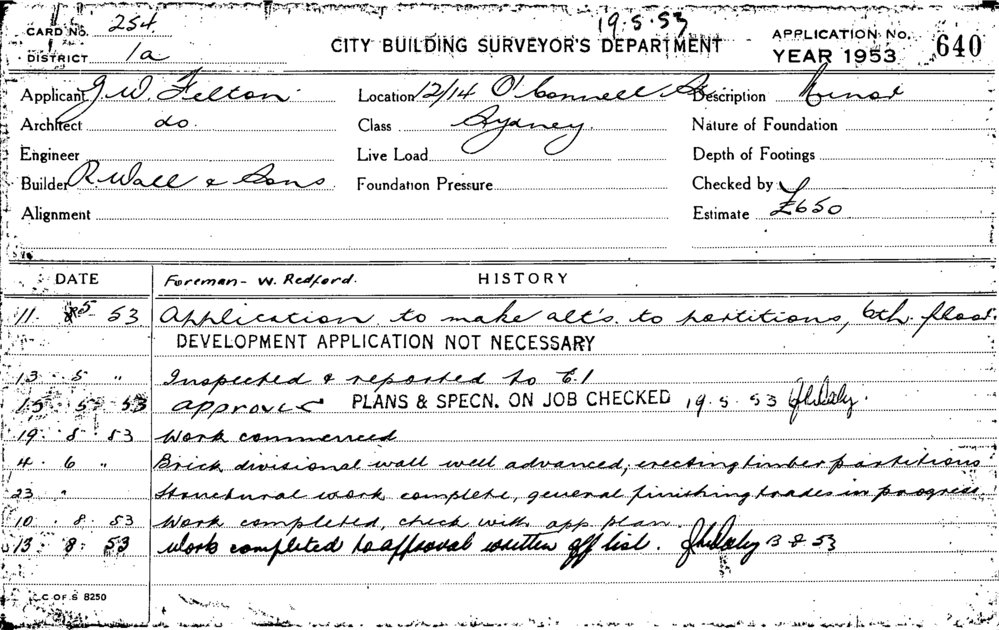 19.5.53
CARD No. 254.
DISTRICT 1a
CITY BUILDING SURVEYOR'S DEPARTMENT
APPLICATION No. 640
YEAR 1953
Applicant J. W. Felton. Location 12/14 O'Connell St Description Minor
Architect do. Class Sydney. Nature of Foundation
Engineer Live Load Depth of Footings
Builder R Wall & Sons Foundation Pressure Checked by
Alignment Estimate £650
DATE Foreman - W. Redford. HISTORY
11. 5 53 Application to make alt's. to partitions, 6th. floor.
DEVELOPMENT APPLICATION NOT NECESSARY
13. 5 " Inspected & reported to E.1
15. 5. 53 approved PLANS & SPECN. ON JOB CHECKED 19.5.53
19. 5. 53 Work commenced
4. 6 " Brick divisional wall well advanced, erecting timber partitions
23 " Structural work complete, general finishing trades in progress
10. 8. 53 Work completed, check with app plan.
13. 8. 53 Work completed to approval written off list. 13 8 53
C. OF S 8250